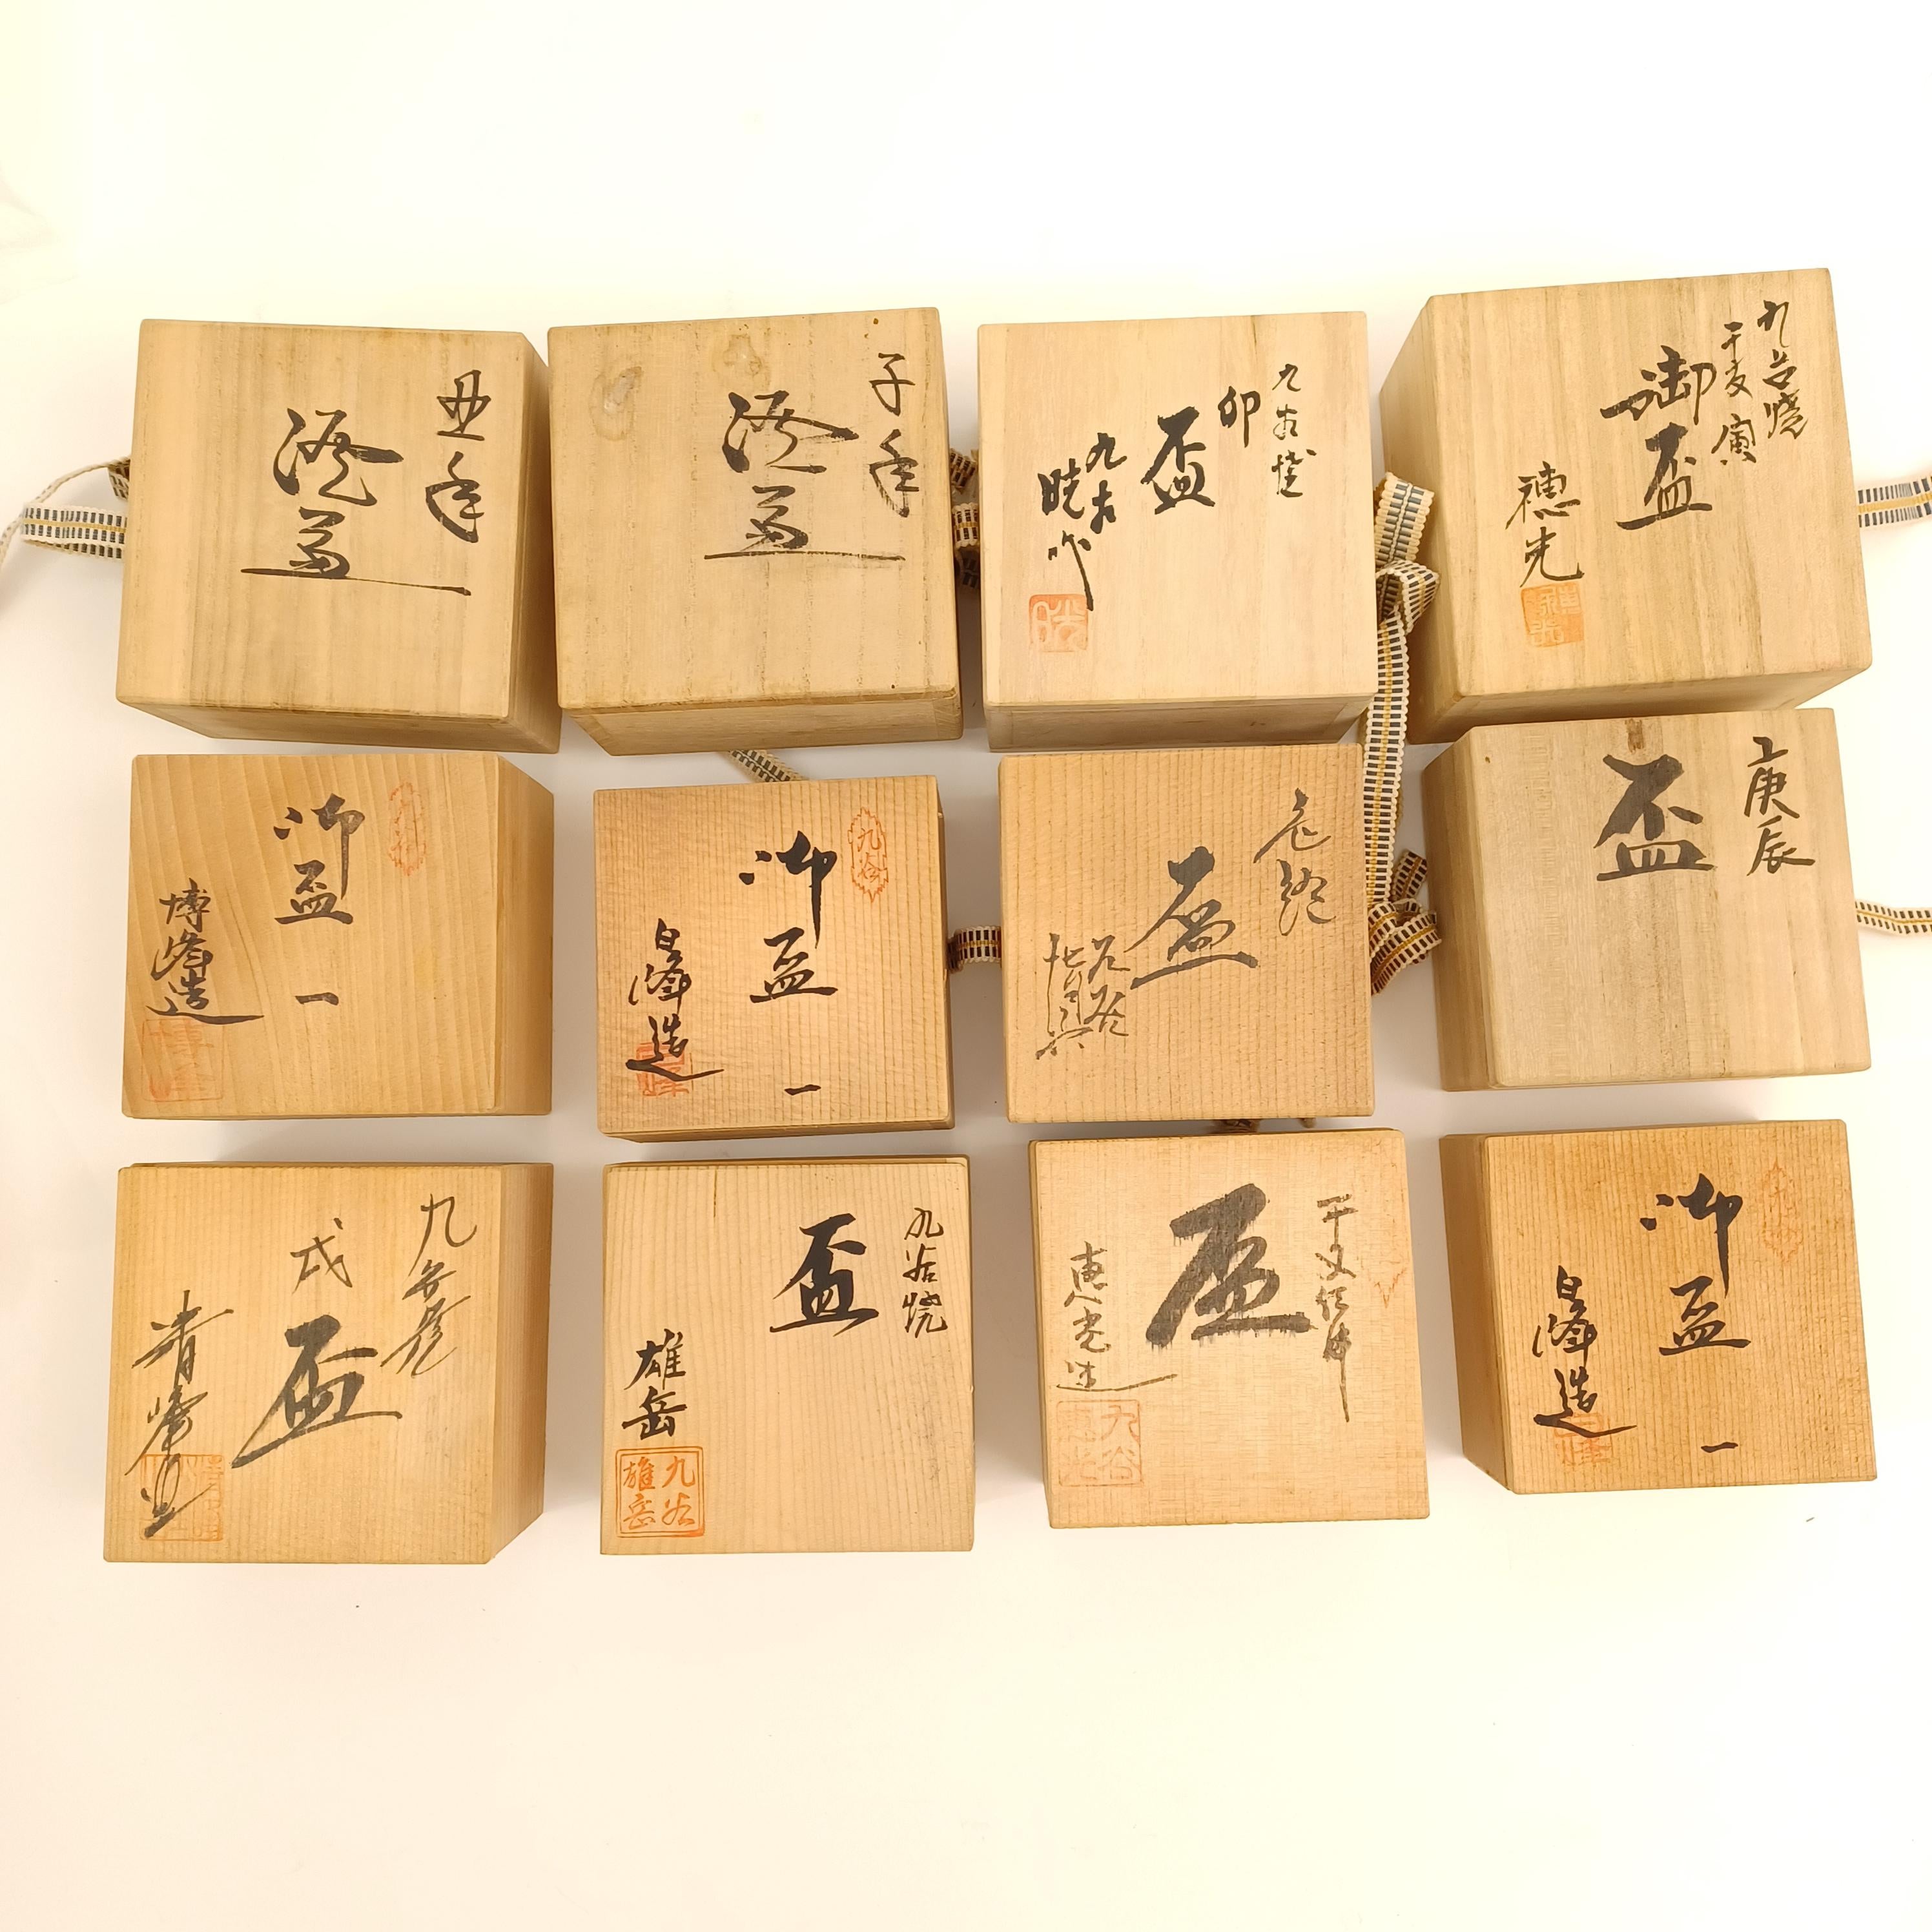 丑年
酒盃
子年
酒盃
九谷焼
卯
盃
九谷
暁作
九谷焼
干支 寅
御盃
穂光
九谷
御盃 一
博峰造
九谷
御盃 一
皀峰造
色絵
盃
九谷
庚辰
盃
九谷焼
戌
盃
青峰
九谷焼
盃
雄岳
九谷
雄岳
干支
盃
恵光造
九谷
恵光
御盃 一
皀峰造